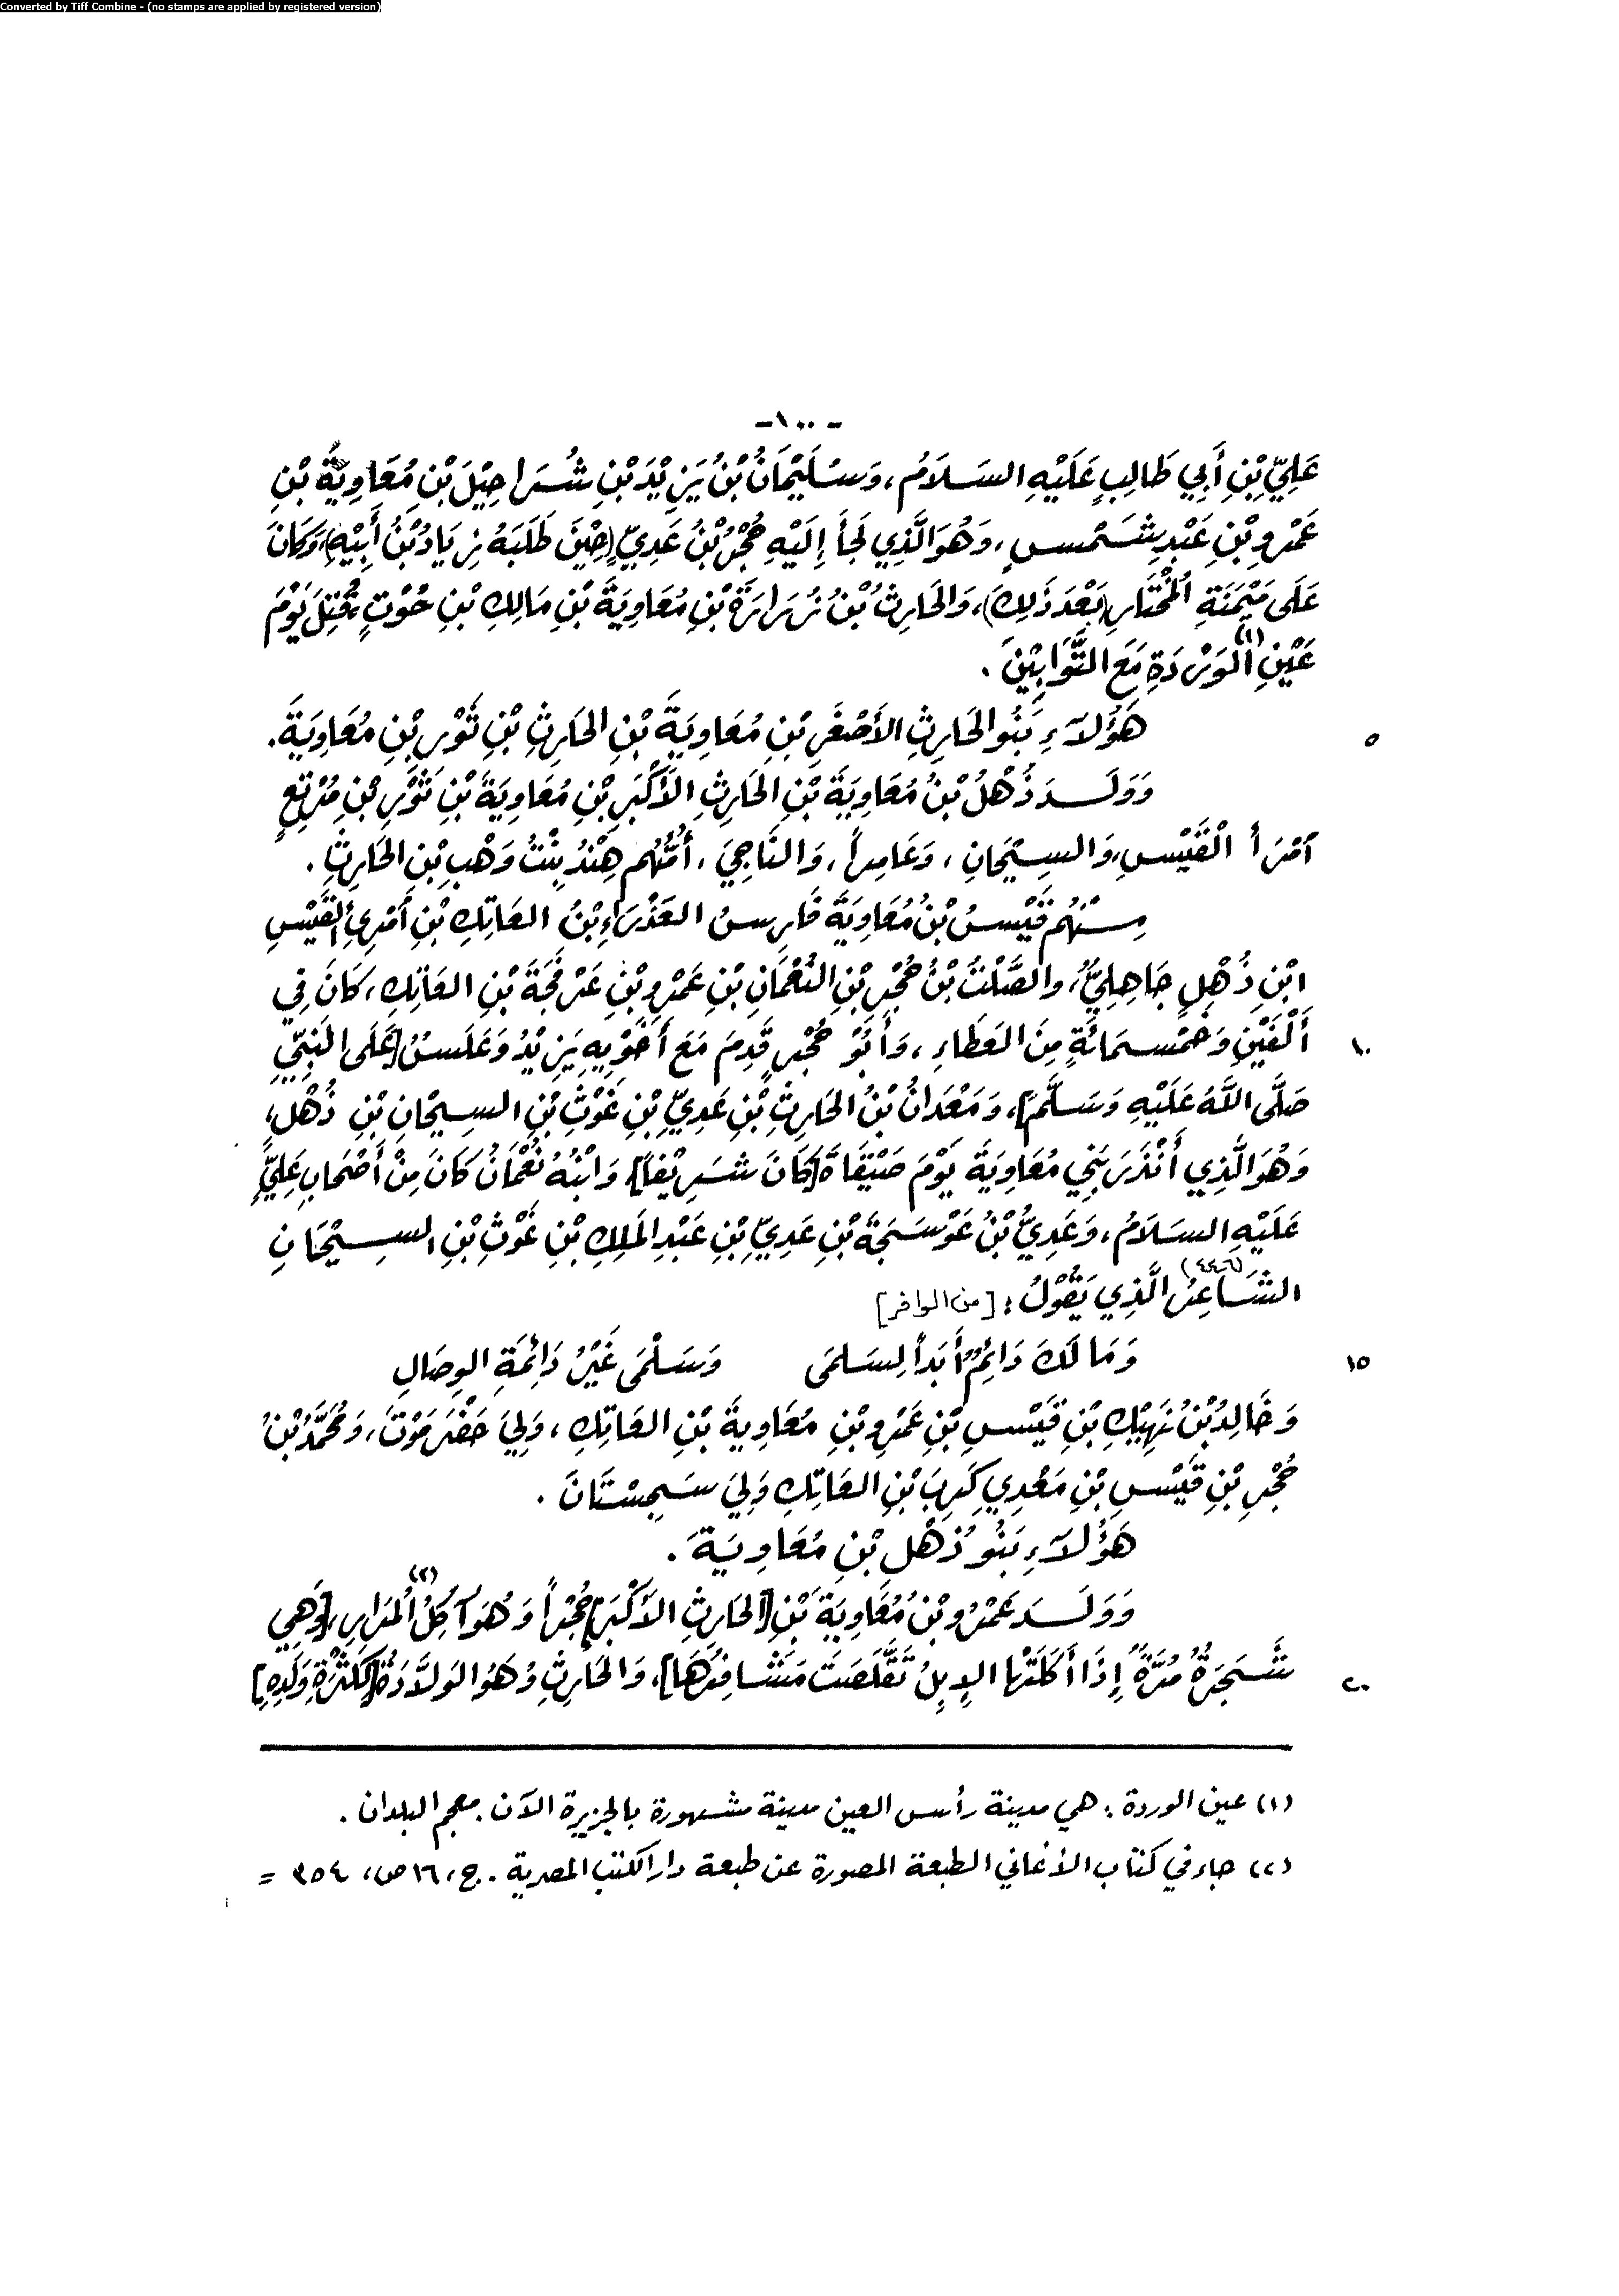 Converted by Tiff Combine - (no stamps are applied by registered version)
-١٠٠-
عَلِيِّ بْنِ أَبِي طَالِبٍ عَلَيْهِ السَلَامُ، وَسُلَيْمَانُ بْنُ يَزِيْدَ بْنِ شُرَاحِيْلَ بْنِ مُعَاوِيَةَ بْنِ
عَمْرِو بْنِ عَبْدِ شَمْسٍ، وَهُوَ الَّذِي لَجَأَ إِلَيْهِ حُجْرُ بْنُ عَدِيٍّ (حِيْنَ طَلَبَهُ زِيَادُ بْنُ أَبِيْهِ)، وَكَانَ
عَلَى مَيْمَنَةِ الْمُخْتَارِ (بَعْدَ ذَلِكَ)، وَالحَارِثُ بْنُ زُرَارَةَ بْنِ مُعَاوِيَةَ بْنِ مَالِكِ بْنِ حُوْتٍ، قُتِلَ يَوْمَ
عَيْنِ الْوَرْدَةِ (١) مَعَ التَّوَّابِيْنَ.
هَؤُلَاءِ بَنُو الحَارِثِ الأَصْغَرِ بْنِ مُعَاوِيَةَ بْنِ الحَارِثِ بْنِ ثَوْرِ بْنِ مُعَاوِيَةَ. ٥
وَوَلَدَ ذُهْلُ بْنُ مُعَاوِيَةَ بْنِ الحَارِثِ الأَكْبَرِ بْنِ مُعَاوِيَةَ بْنِ ثَوْرِ بْنِ مُرْتِعٍ
آمْرَأَ الْقَيْسِ، وَالسِيْحَانِ، وَعَامِراً، وَالنَاجِيَ، أُمُّهُم هِنْدُ بِنْتُ وَهْبِ بْنِ الحَارِثِ.
مِنْهُم قَيْسُ بْنُ مُعَاوِيَةَ فَارِسُ العَذْرَاءِ بْنُ العَاتِكِ بْنِ أمْرِئِ القَيْسِ
ابْنِ ذُهْلٍ جَاهِلِيٌّ، والصَّلْتُ بْنُ حُجْرِ بْنِ النُعْمَانِ بْنِ عَمْرِو بْنِ عَرْفَجَةَ بْنِ العَاتِكِ، كَانَ فِي
أَلْفَيْنِ وَخَمْسمَائَةٍ مِنَ العَطَاءِ، وَأَبُوْ حُجْرٍ قَدِمَ مَعَ أَخَوْيِهِ يَزِيْدُ وَعَلَسُ [عَلَى النَبِيِّ ١٠
صَلَّى اللَّهُ عَلَيْهِ وَسَلَّمَ]، وَمَعْدَانُ بْنُ الحَارِثِ بْنِ عَدِيِّ بْنِ غَوْثِ بْنِ السِيْحَانِ بْنِ ذُهْلٍ،
وَهُوَ الَّذِي أَنْذَرَ بَنِي مُعَاوِيَةَ يَوْمَ صَيْقَاةَ [كَانَ شَرِيْفاً] وَابْنُهُ نُعْمَانُ كَانَ مِنْ أَصْحَابِ عَلِيٍّ
عَلَيْهِ السَلَامُ، وَعَدِيُّ بْنُ عَوْسَجَةَ بْنِ عَدِيِّ بْنِ عَبْدِ المَلِكِ بْنِ غَوْثِ بْنِ السِيْحَانِ
الشَاعِرُ (٤٤٦) الَّذِي يَقُوْلُ: [من الوافر]
وَمَا لَكَ دَائِمٌ أَبَداً لِسَلمَى وَسَلْمَى غَيْرُ دَائِمَةِ الوِصَالِ ١٥
وَخَالِدُ بْنُ نَهِيْكِ بْنِ قَيْسِ بْنِ عَمْرِو بْنِ مُعَاوِيةَ بْنِ العَاتِكِ، وَلِيَ حَضْرَمَوْتَ، وَمُحَمَّدُ بْنُ
حُجْرِ بْنِ قَيْسِ بْنِ مَعْدِي كَرِبَ بْنِ العَاتِكِ وَلِيَ سَجِسْتَانَ.
هَؤُلَاءِ بَنُو ذُهْلِ بْنِ مُعَاوِيَةَ.
وَوَلَدَ عَمْرُو بْنُ مُعَاوِيَةَ بْنِ [الحَارِثِ الأَكْبَرِ] حُجْراً وَهُوَ آكِلُ الْمُرَارِ (٢)، [وَهِي
شَجَرَةٌ مُرَّةٌ إِذَا أَكَلَتْهَا الإِبِلُ تَقَّلَصَتَ مَشَافِرُهَا]، وَالحَارِثِ وُهَوُ الوَلاَّدَةُ [لِكَثْرَةِ وَلَدِهِ] ٢٠
(١) عين الوردة: هي مدينة رأس العين مدينة مشهورة بالجزيرة الآن. معجم البلدان.
(٢) جاء في كتاب الأغاني الطبعة المصورة عن طبعة دار الكتب المصرية. ج، ١٦ ص، ٣٥٤ =